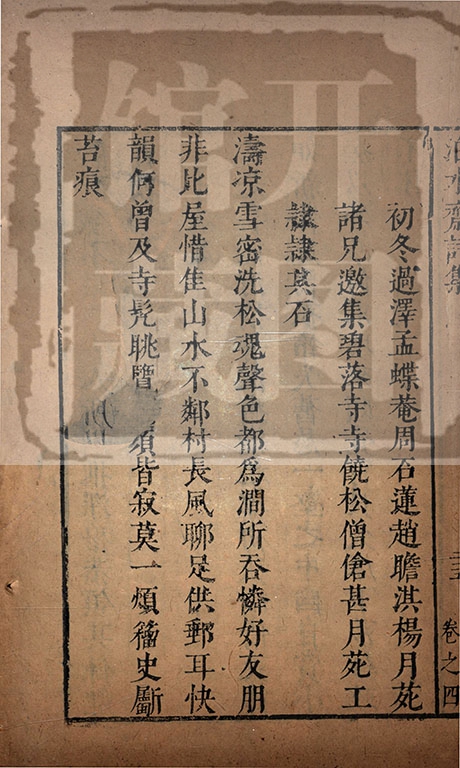 初冬過澤孟蝶菴周石蓮趙瞻淇楊月茒
諸兄邀集碧落寺寺饒松僧傖甚月茒工
隸隸其石
濤凉雪密洗松魂聲色都為澗所吞憐好友朋
非比屋惜佳山水不鄰村長風聊足供郵耳快
韻何曾及寺髡眺覽須皆寂莫一煩籀史劚
苔痕
卷之四